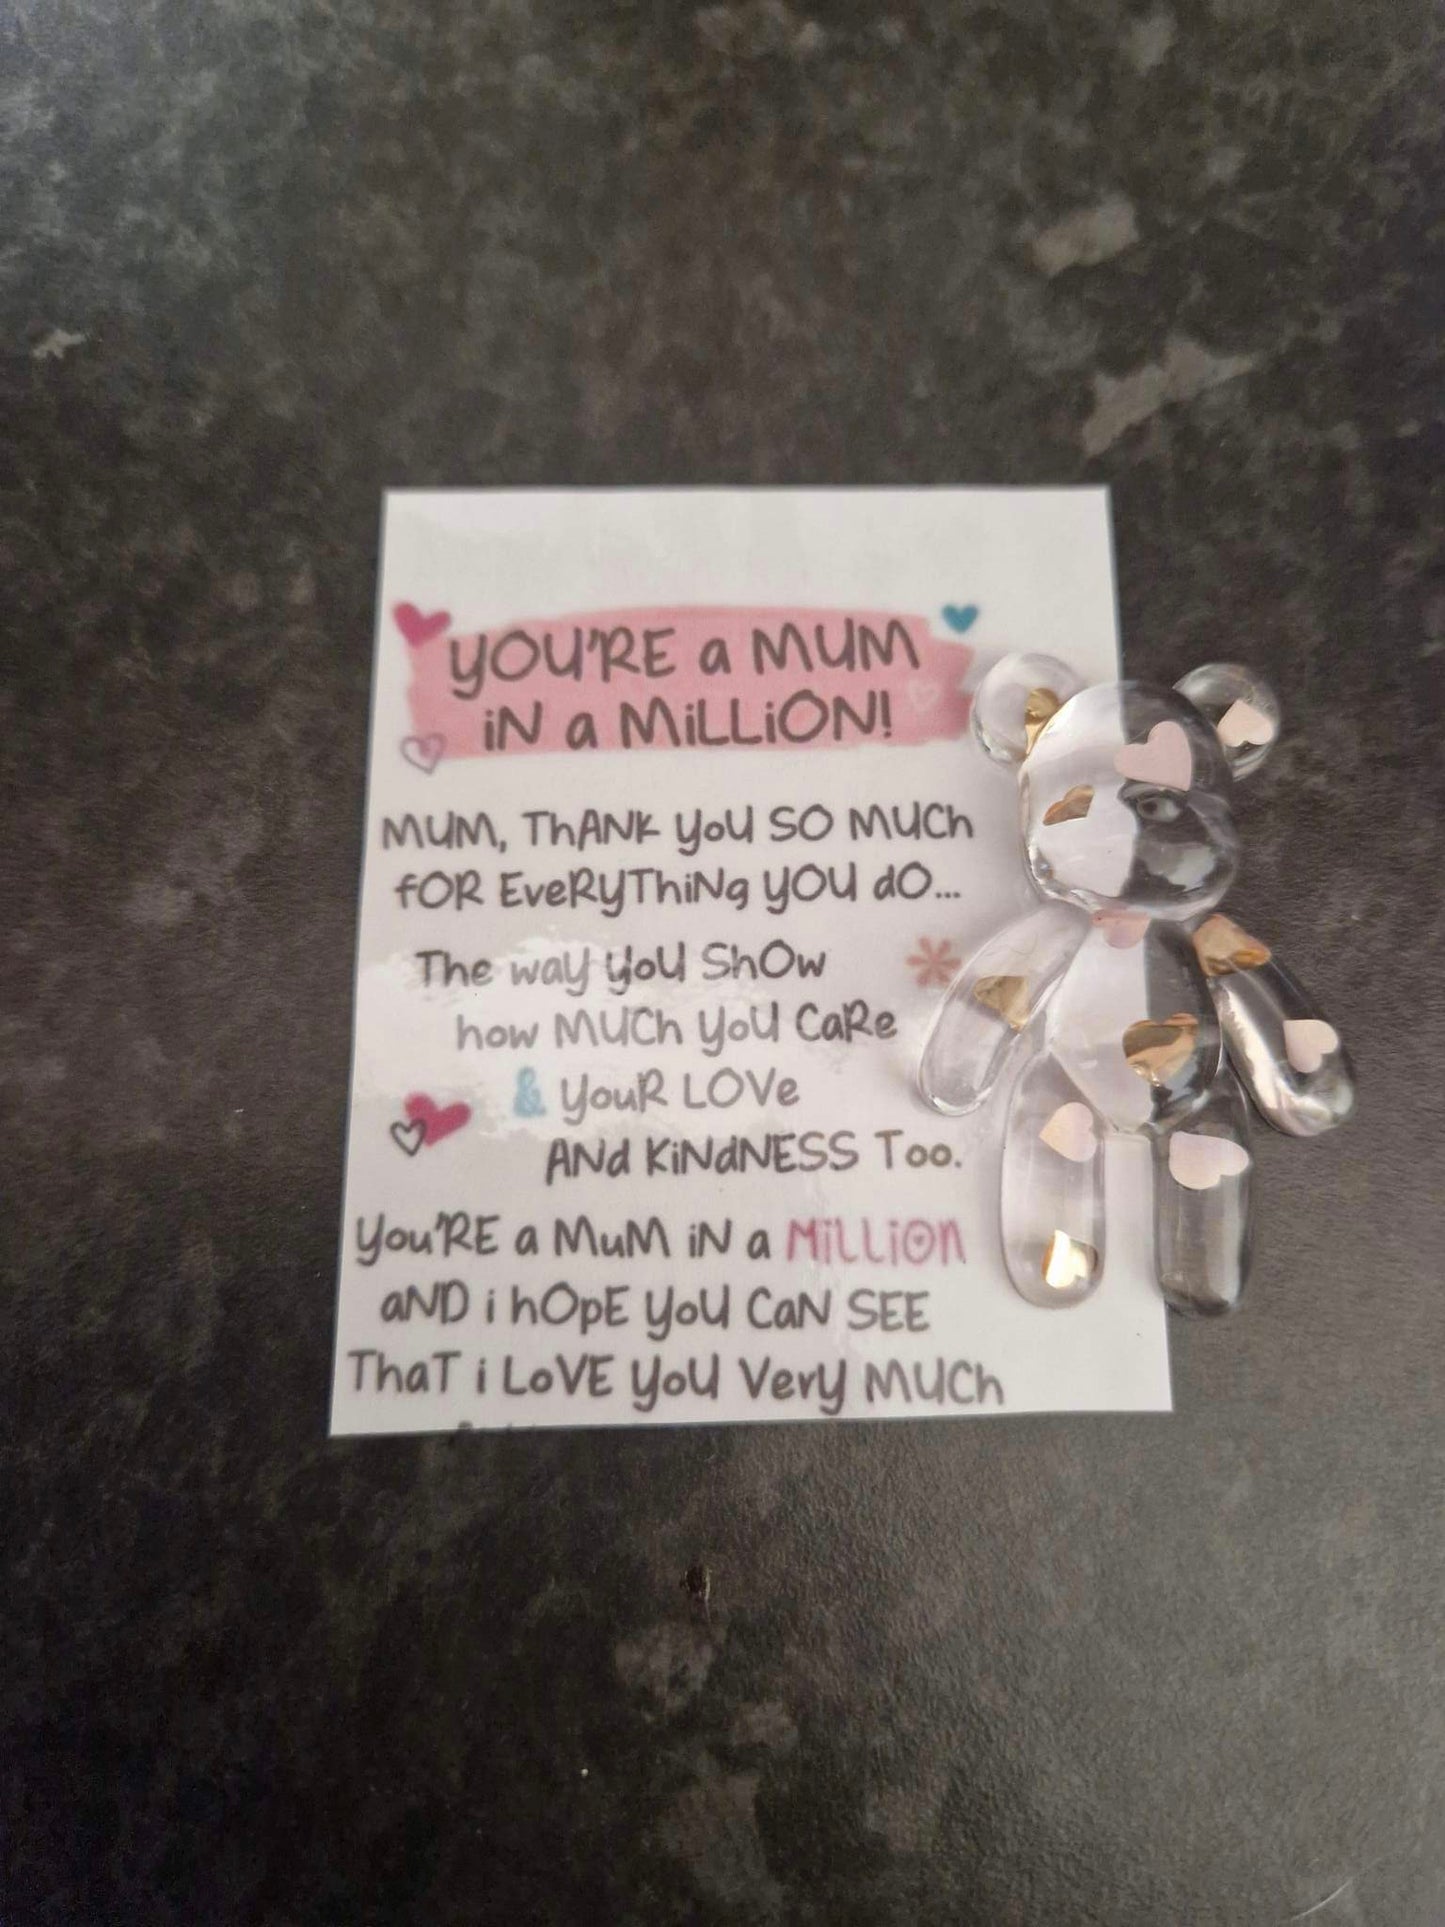 YOU'RE a MUM
iN a MiLLiON!
MUM, ThANK YoU SO MUCh
fOR EveRYThiNg YOU dO...
The way YoU ShOw
how MUCh YoU CaRe
& YouR LOVe
ANd KiNdNESS Too.
You'RE a MuM iN a MiLLiON
aND i hOpE YoU CaN SEE
ThaT i LoVE YoU VerY MUCh